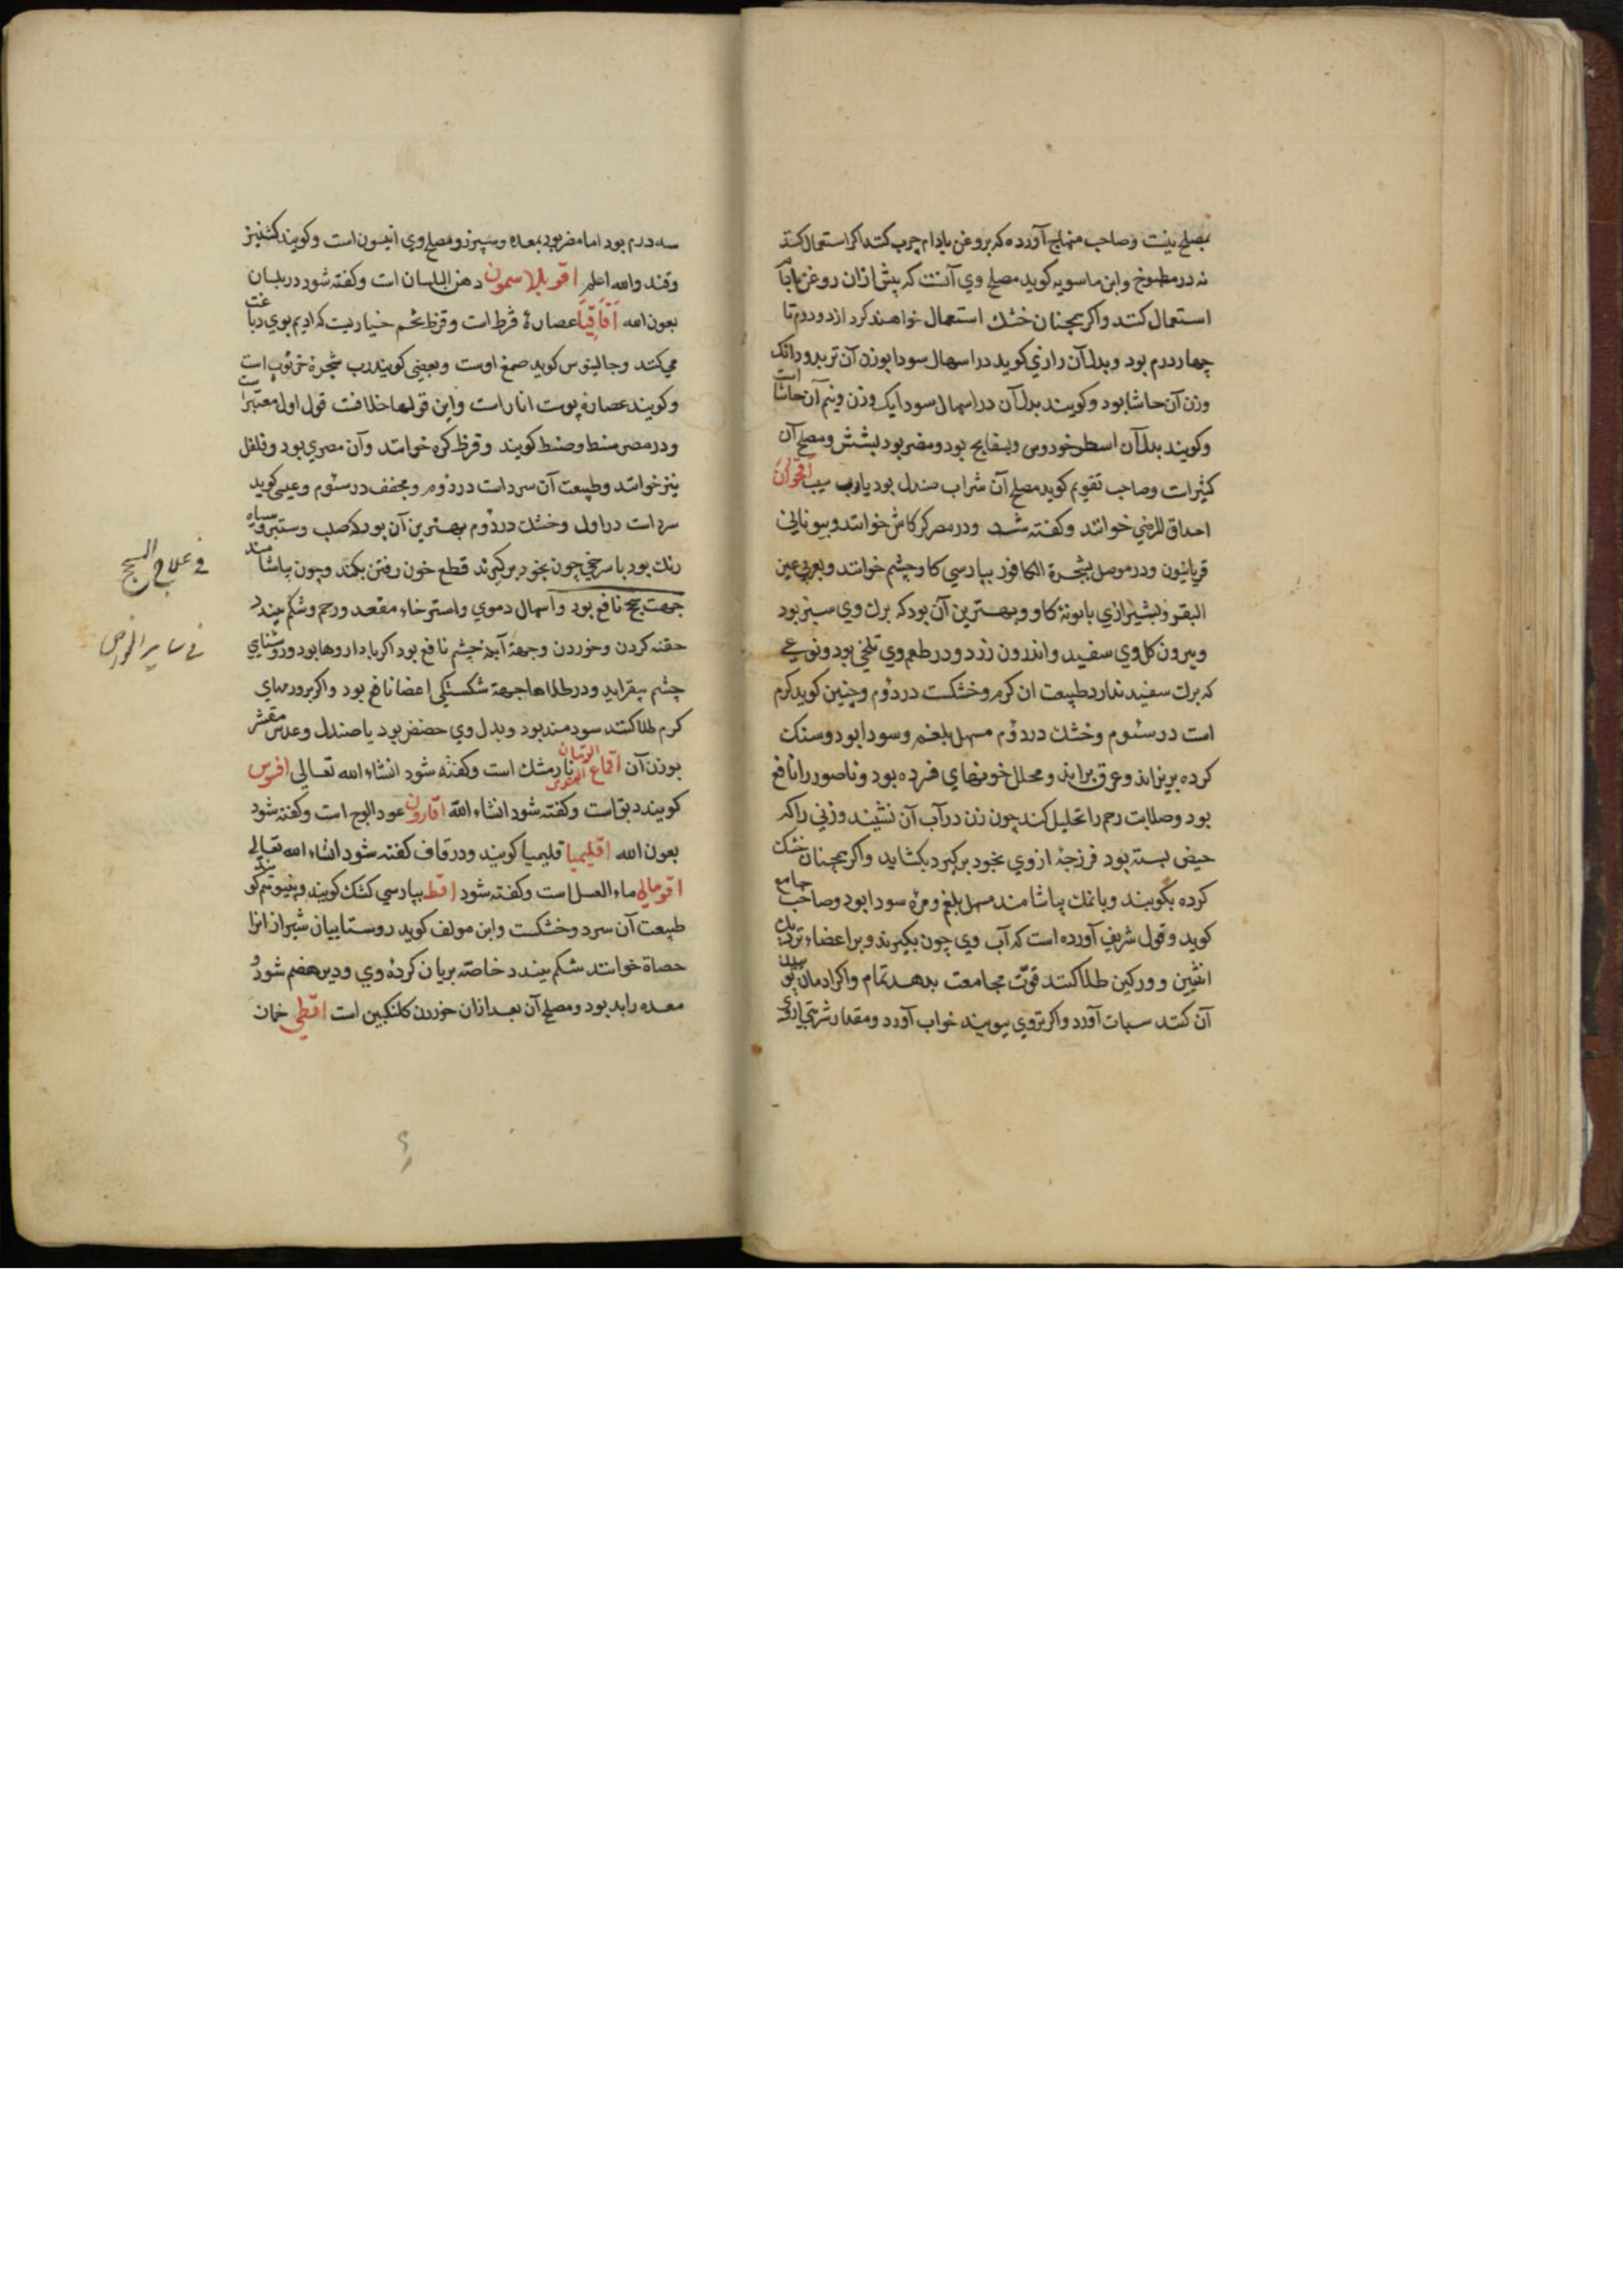 بمصلح نیست وصاحب منهاج آورده که بروغن بادام چرب کنند اکر استعمال کنند
نه در مطبوخ وابن ماسویه کوید مصلح وی آنست که پیش ازان روغن بادام
استعمال کنند واکر همچنان خشک استعمال خواهند کرد از دو درم تا
چهار درم بود وبدل آن رازی کوید در اسهال سودا بوزن آن تربد ودانک
وزن آن حاشا بود وکویند بدل آن در اسهال سودا یک وزن ونیم آن حاشا است
وکویند بدل آن اسطوخودوس وبسفایج بود ومضر بود بشش ومصلح آن
کثیراست وصاحب تقویم کوید مصلح آن شراب صندل بود یا رب سیب اقحوان
احداق المرضی خوانند وکفته شد ودر مصر کرکاش خوانند وبیونانی
قربانیون ودر موصل شجرة الکافور بپارسی کاوچشم خوانند وبعربی عین
البقر وبشیرازی بابونهٔ کاو وبهترین آن بود که برک وی سبز بود
وبیرون کل وی سفید واندرون زرد ودر طعم وی تلخی بود ونوعی
که برک سفید ندارد طبیعت ان کرم وخشکست در دوم وچنین کوید کرم
است در سئوم وخشک در دوم مسهل بلغم وسودا بود وسنک
کرده بریزاند وعرق براند ومحلل خونهای فسرده بود وناصور را نافع
بود وصلابت رحم را تحلیل کند چون زن در آب آن نشیند وزنی را که
حیض بسته بود فرزجهٔ ازوی بخود برکیرد بکشاید واکر همچنان خشک
کرده بکوبند وبا نمک بیاشامند مسهل بلغم ومره سودا بود وصاحب جامع
کوید وقول شریف آورده است که آب وی چون بکیرند وبر اعضاء نزدیک
انثیین وورکین طلا کنند قوّت مجامعت بدهد تمام واکر ادمان بوییدن
آن کنند سبات آورد واکر تروی ببویند خواب آورد ومقدار شربتی ازوی
سه درم بود اما مضر بود بمعده وسپرز ومصلح وی انیسون است وکویند کشنیز
وقند والله اعلم اقوبلاسمون دهن البلسان است وکفته شود در بلسان
بعون الله اَقَاقِیَا عصارهٔ قرط است وقرظ تخم خیاریست که ادیم بوی دباغت
می کنند وجالینوس کوید صمغ اوست وبعضی کویند رب شجرة خرنوب است
وکویند عصاره پوست انار است واین قولها خلافت قول اول معتبر است
ودر مصر سنط وصنط کویند وقرظ کره خوانند وآن مصری بود وفلفل
نیز خوانند وطبیعت آن سرد است در دوم ومجفف در سئوم وعیسی کوید
سرد است در اول وخشک در دوم بهترین آن بود که صلب وستبر وسیاه
رنک بود با سرخی چون بخود برکیرند قطع خون رفتن بکند وچون بیاشامند
جهت سحج نافع بود واسهال دموی واسترخاء مقعد ورحم وشکم ببندد
حقنه کردن وخوردن وجهة آبله چشم نافع بود اکر با داروها بود وروشنایی
چشم بیفزاید ودر طلاها جهة شکستکی اعضا نافع بود واکر بر ورمهای
کرم طلا کنند سودمند بود وبدل وی حضض بود یا صندل وعدس مقشر
بوزن آن اقماع الرمان نارمشک است وکفته شود انشاء الله تعالی افیوس
کویند دبق است وکفته شود انشاء الله اقارون عود البوج است وکفته شود
بعون الله اقلیمیا قلیمیا کویند ودر قاف کفته شود انشاء الله تعالی
اقومالی ماء العسل است وکفته شود اقط بپارسی کشک کویند
طبیعت آن سرد وخشکست وابن مولف کوید روستاییان شیراز انرا
حصاة خوانند شکم ببندد خاصّه بریان کردهٔ وی ودیر هضم شود و
معده را بد بود ومصلح آن بعد ازان خوردن کلنکبین است اقطی خمان
فی علاج السحج